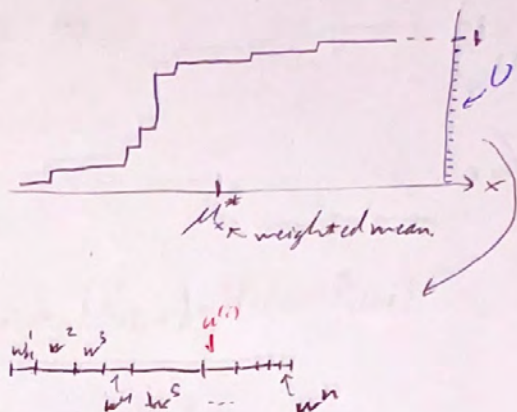 1
U
x
μ*x weighted mean.
u(i)
w1 w2 w3
w4 w5 ... wn